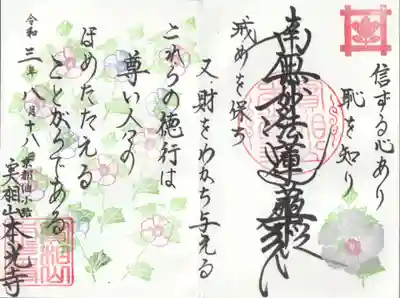 信ずる心あり
恥を知り
南無妙法蓮華経
戒めを保ち
又財をわかち与える
これらの徳行は
尊い人々の
ほめたたえる
ことがらである
令和三年八月十八日
京都油小路
実相山本光寺